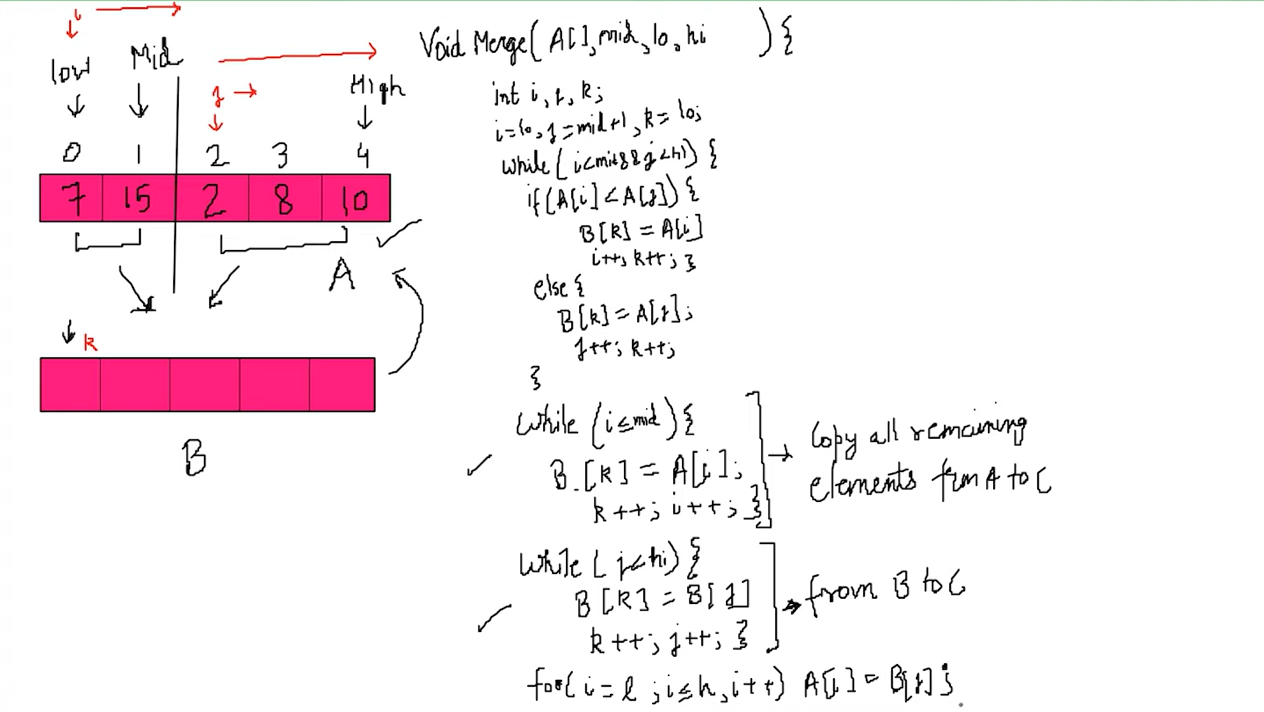 i
low Mid
j
High
0 1 2 3 4
7 15 2 8 10
A
k
B
Void Merge( A[], mid, lo, hi ) {
int i, j, k;
i=lo, j=mid+1, k=lo;
while( i<mid && j<hi) {
if(A[i] < A[j]) {
B[k] = A[i]
i++, k++; }
else {
B[k] = A[j];
j++; k++;
}
while (i≤mid) {
B[k] = A[i];
k++; i++; }
Copy all remaining
elements from A to C
while( j<hi) {
B[k] = B[j]
k++; j++; }
from B to C
for( i=l ; i≤h, i++) A[i] = B[j];